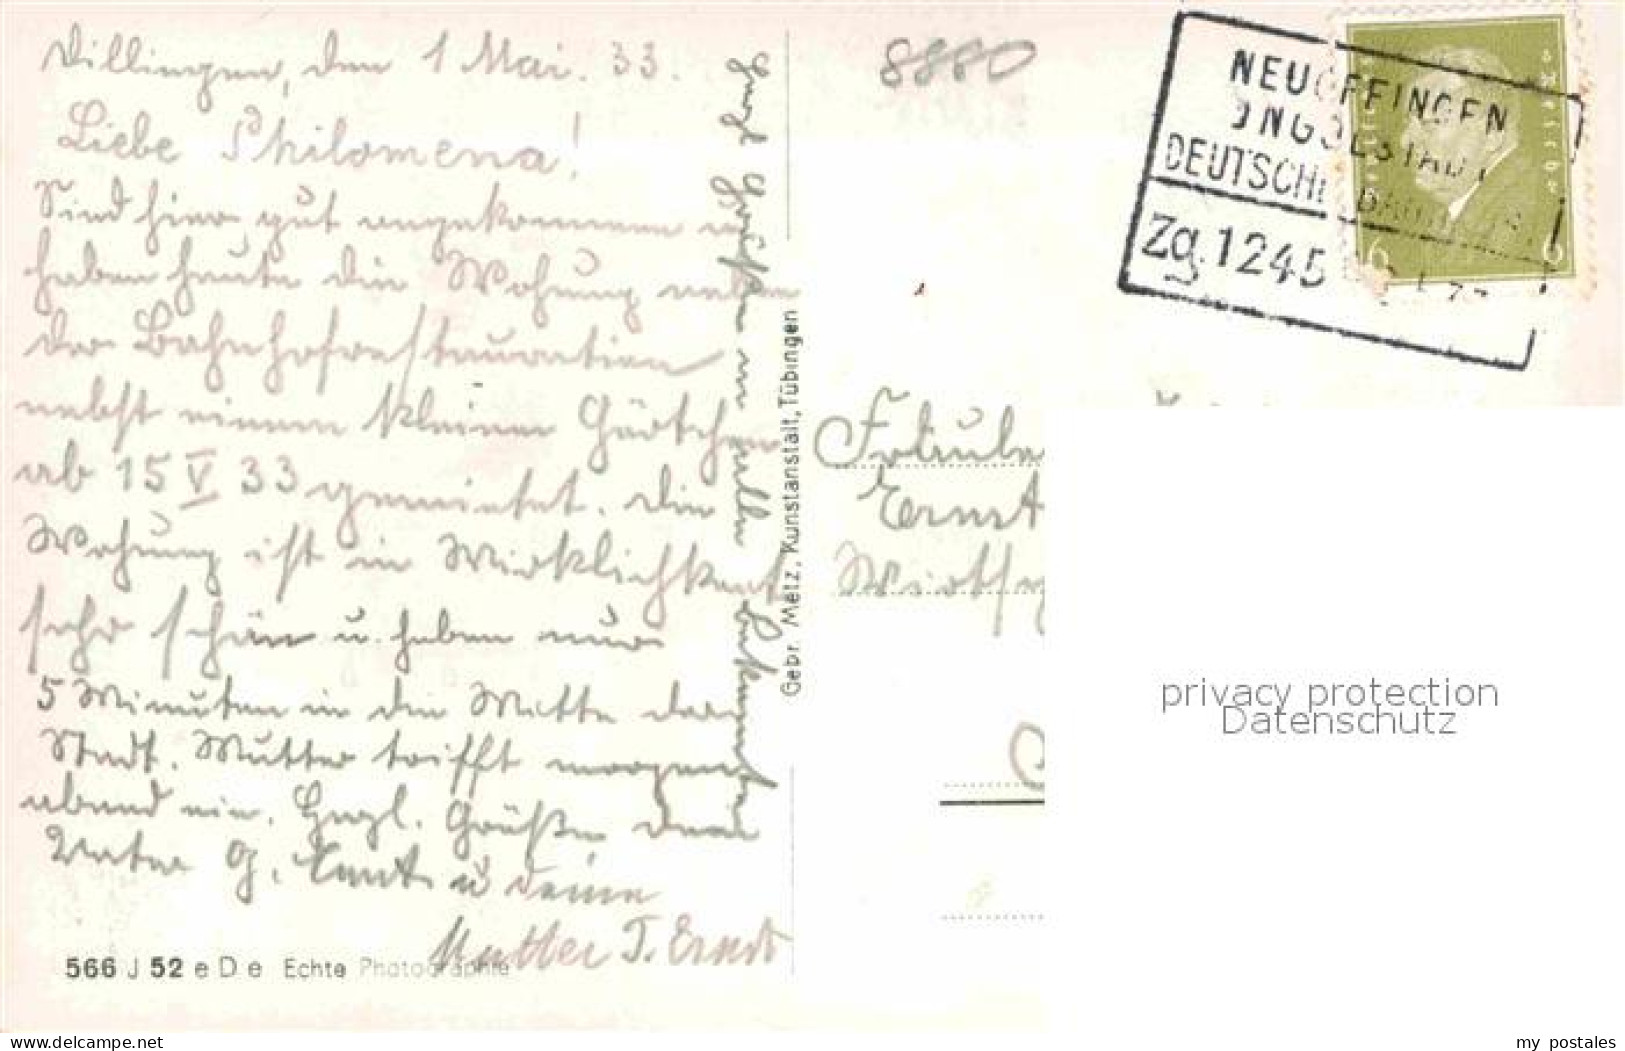 Dillingen, den 1 Mai. 33.
Liebe Philomena!
Sind hier gut angekommen u
haben heute die Wohung neben
der Bahnhofrestauration
nebst einem kleinen Gärtchen
ab 15 V 33 gemietet. Die
Wohung ist in Wirklichkeit
sehr schön u. haben nur
5 Minuten in die Mitte der
Stadt. Mutter trifft morgen
abend ein. Herzl. Grüße dein
Vater G. Ernst u deine
Mutter T. Ernst
Herzl Grüße an alle Bekannte
566 J 52 e D e Echte Photographie
Gebr. Metz, Kunstanstalt, Tübingen
8880
NEUOFFINGEN
INGOLSTADT
DEUTSCHE
Zg. 1245
6 6
Fräule
Ernst
Wirtsch
privacy protection
Datenschutz
www.ansichtskartencenter.com
my postales